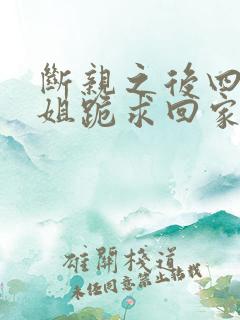 斷親之後四
姐跪求回家
雄關棧道
未经同意禁止转载